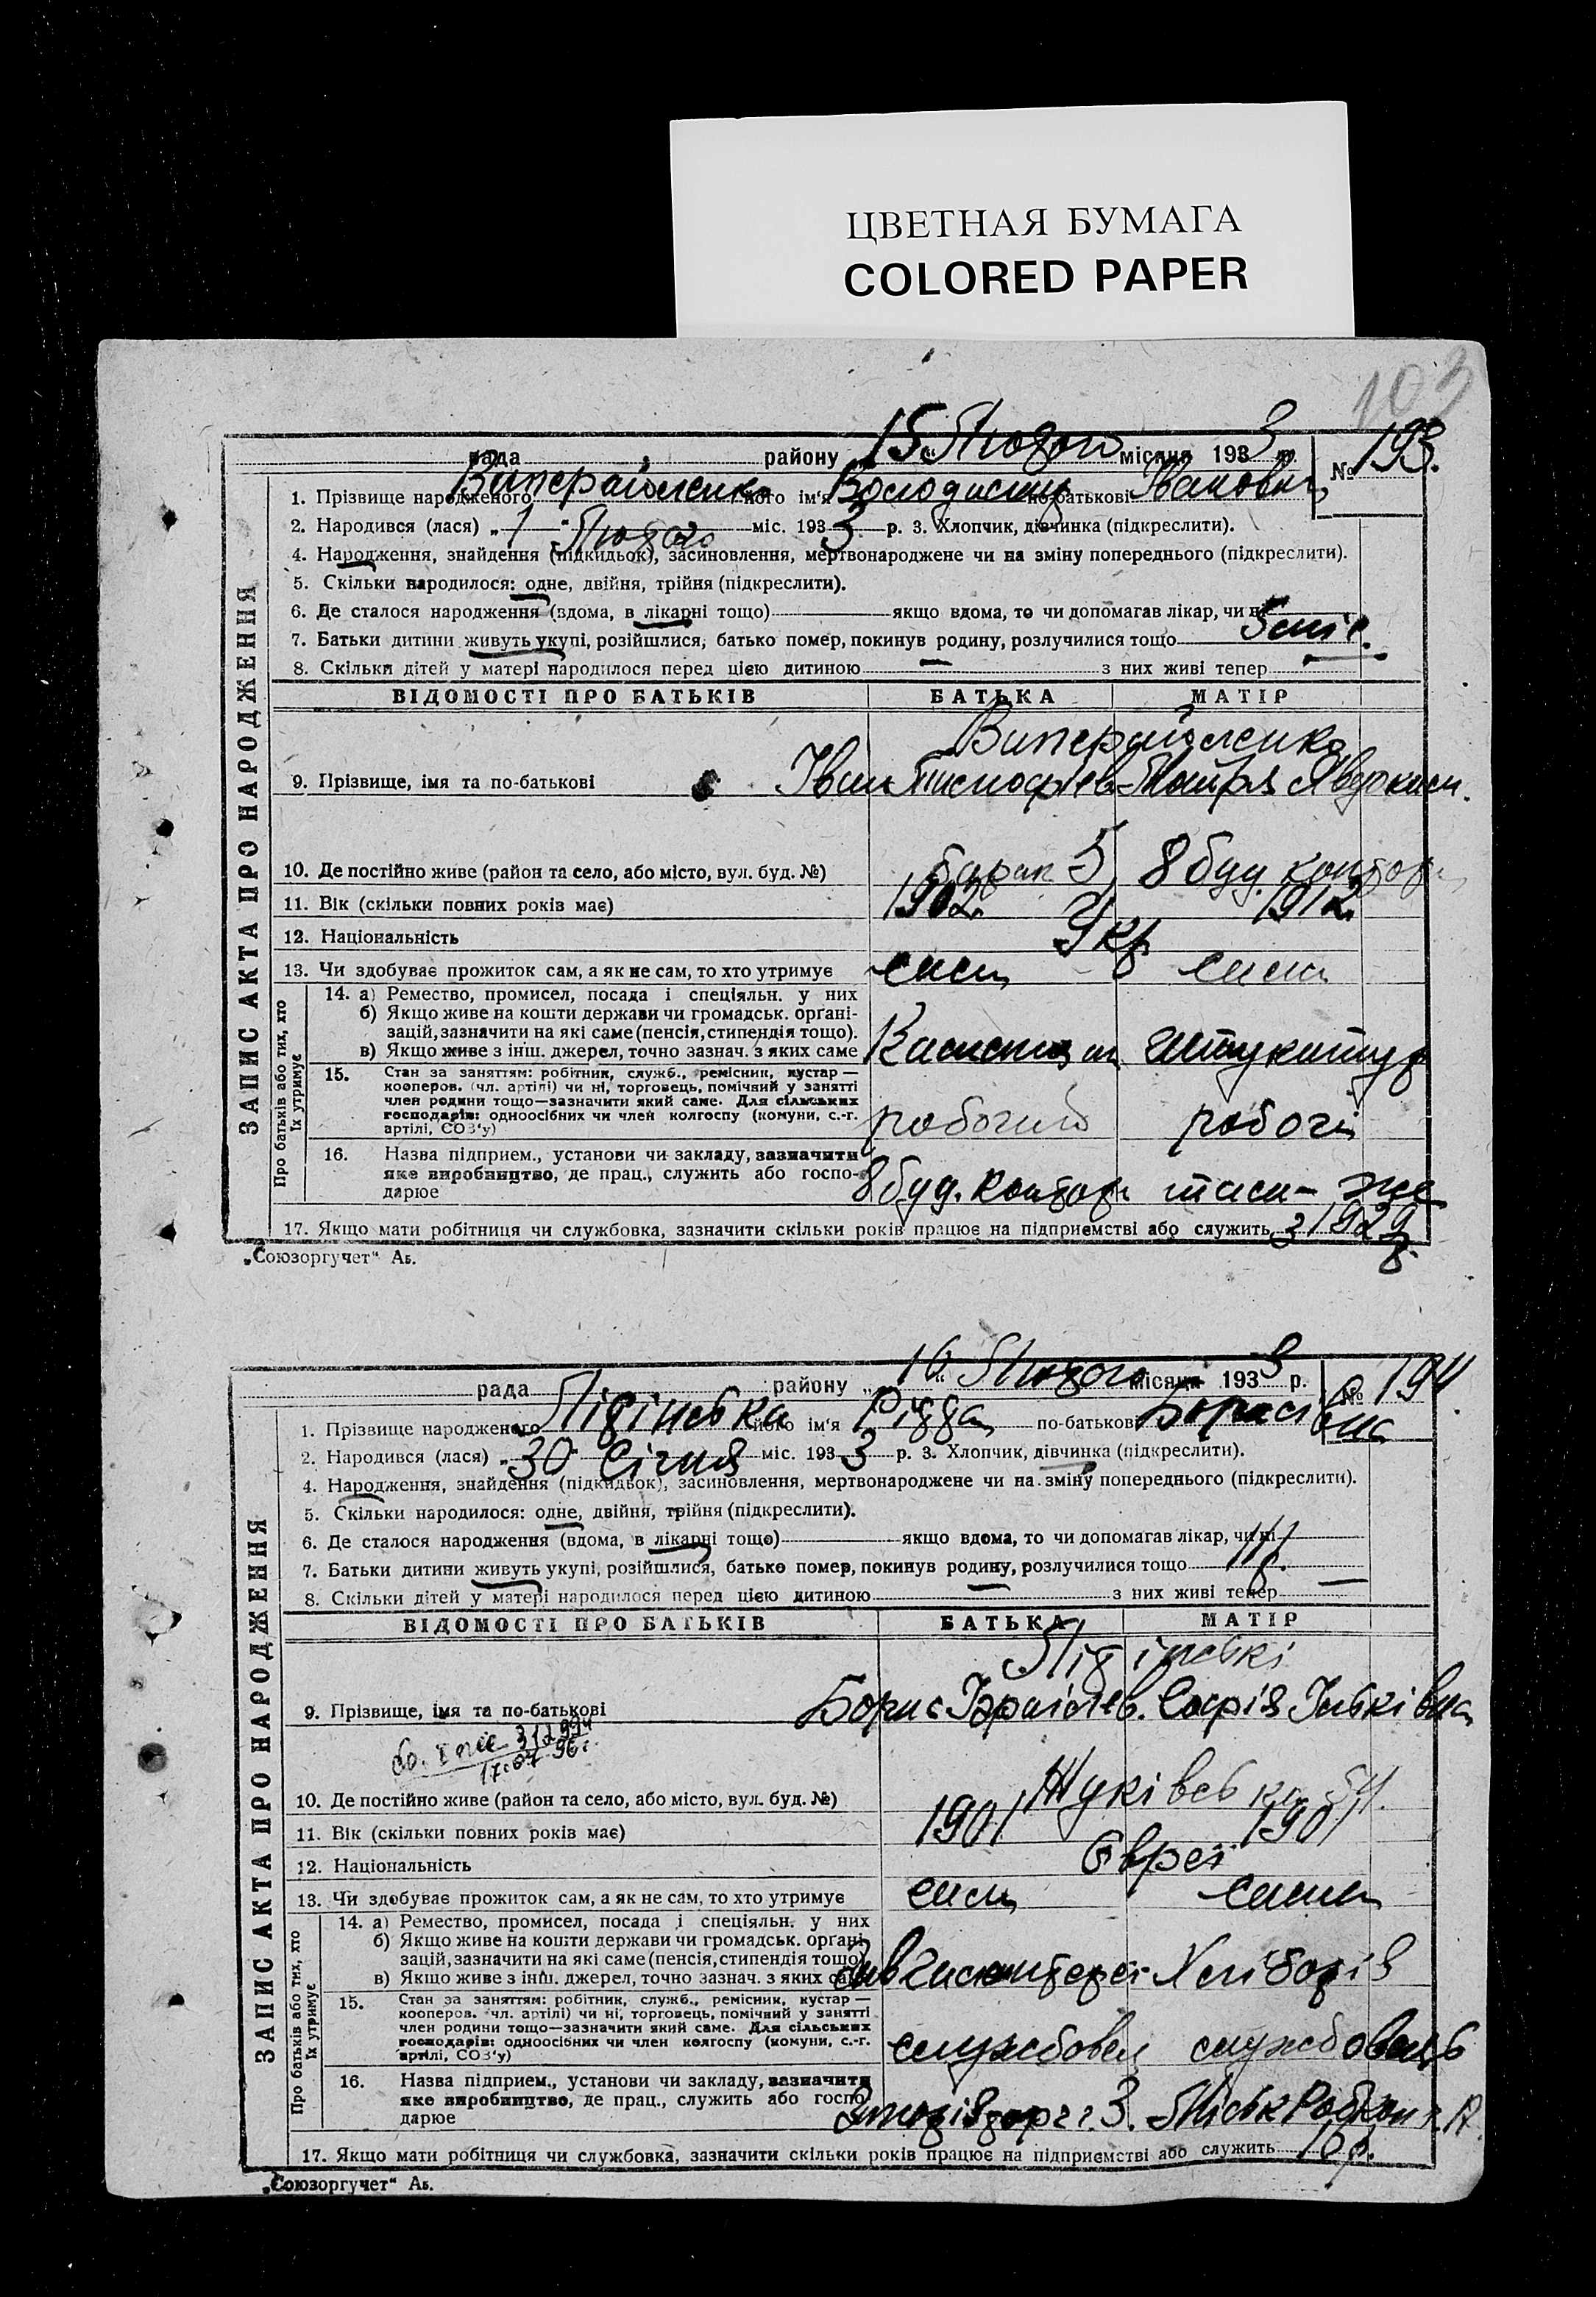 ЦВЕТНАЯ БУМАГА
COLORED PAPER
103
рада району 15 Лютого місяця 1933 р. № 193.
ЗАПИС АКТА ПРО НАРОДЖЕННЯ
1. Прізвище народженого його ім'я Володимир по-батькові Іванович
2. Народився (лася) „ 1 " Лютого міс. 1933 р. 3. Хлопчик, дівчинка (підкреслити).
4. Народження, знайдення (підкидьок), засиновлення, мертвонароджене чи на зміну попереднього (підкреслити).
5. Скільки народилося: одне, двійня, трійня (підкреслити).
6. Де сталося народження (вдома, в лікарні тощо) якщо вдома, то чи допомагав лікар, чи ні
7. Батьки дитини живуть укупі, розійшлися, батько помер, покинув родину, розлучилися тощо 5 міс.
8. Скільки дітей у матері народилося перед цією дитиною — з них живі тепер —
ВІДОМОСТІ ПРО БАТЬКІВ БАТЬКА МАТІР
9. Прізвище, імя та по-батькові Іван
10. Де постійно живе (район та село, або місто, вул. буд. №) барак 5 8 буд. контора
11. Вік (скільки повних років має) 1902 1912
12. Національність Укр
13. Чи здобуває прожиток сам, а як не сам, то хто утримує сам сама
Про батьків або тих, хто їх утримує
14. а) Ремество, промисел, посада і спеціяльн. у них
б) Якщо живе на кошти держави чи громадськ. органі-
зацій, зазначити на які саме (пенсія, стипендія тощо).
в) Якщо живе з інш. джерел, точно зазнач. з яких саме штукатур
15. Стан за заняттям: робітник, служб., ремісник, кустар —
кооперов. (чл. артілі) чи ні, торговець, помічний у занятті
член родини тощо—зазначити який саме. Для сільських
господарів: одноосібних чи член колгоспу (комуни, с.-г.
артілі, СОЗ'у) робочий робоча
16. Назва підприєм., установи чи закладу, зазначити
яке виробництво, де прац., служить або госпо-
дарює 8 буд. контора там-же
17. Якщо мати робітниця чи службовка, зазначити скільки років працює на підприємстві або служить з 1929 р.
„Союзоргучет" Аб.
рада району „16" Лютого місяця 1933 р. № 194
ЗАПИС АКТА ПРО НАРОДЖЕННЯ
1. Прізвище народженого його ім'я Різда по-батькові Борисівна
2. Народився (лася) „ 30 Січня міс. 1933 р. 3. Хлопчик, дівчинка (підкреслити).
4. Народження, знайдення (підкидьок), засиновлення, мертвонароджене чи на зміну попереднього (підкреслити).
5. Скільки народилося: одне, двійня, трійня (підкреслити).
6. Де сталося народження (вдома, в лікарні тощо) якщо вдома, то чи допомагав лікар, чи ні
7. Батьки дитини живуть укупі, розійшлися, батько помер, покинув родину, розлучилися тощо
8. Скільки дітей у матері народилося перед цією дитиною — з них живі тепер —
ВІДОМОСТІ ПРО БАТЬКІВ БАТЬКА МАТІР
9. Прізвище, імя та по-батькові Борис Ізраілев. Софія
17.07.96
10. Де постійно живе (район та село, або місто, вул. буд. №) Жуківська
11. Вік (скільки повних років має) 1901 1901
12. Національність Євреї
13. Чи здобуває прожиток сам, а як не сам, то хто утримує сам сама
Про батьків або тих, хто їх утримує
14. а) Ремество, промисел, посада і спеціяльн. у них
б) Якщо живе на кошти держави чи громадськ. органі-
зацій, зазначити на які саме (пенсія, стипендія тощо).
в) Якщо живе з інш. джерел, точно зазнач. з яких саме
15. Стан за заняттям: робітник, служб., ремісник, кустар —
кооперов. чл. артілі) чи ні, торговець, помічний у занятті
член родини тощо—зазначити який саме. Для сільських
господарів: одноосібних чи член колгоспу (комуни, с.-г.
артілі, СОЗ'у) службовец службовець
16. Назва підприєм., установи чи закладу, зазначити
яке виробництво, де прац., служить або госпо-
дарює
17. Якщо мати робітниця чи службовка, зазначити скільки років працює на підприємстві або служить 16 р.
„Союзоргучет" Аб.